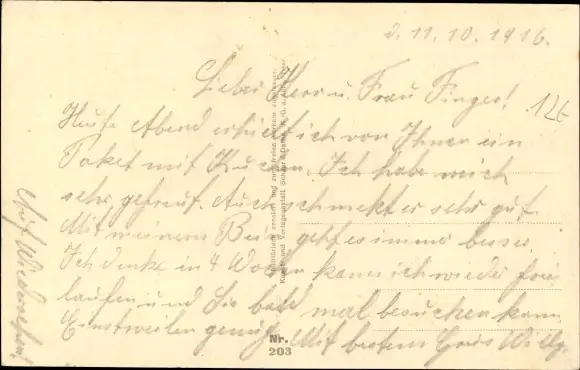 d. 11.10.1916.
Lieber Herr u. Frau Finger!
12E
Heute Abend erhielt ich von Ihnen ein
Paket mit Kuchen. Ich habe mich
sehr gefreut. Auch schmekt er sehr gut.
Mit meinem Bein geht es immer besser.
Ich denke in 4 Wochen kann ich wieder frei
laufen und Sie bald mal besuchen kann
Einstweilen genug. Mit bestem Grus Willy.
Auf Wiedersehen!
Kunst- und Verlagsanstalt
Nr.
203